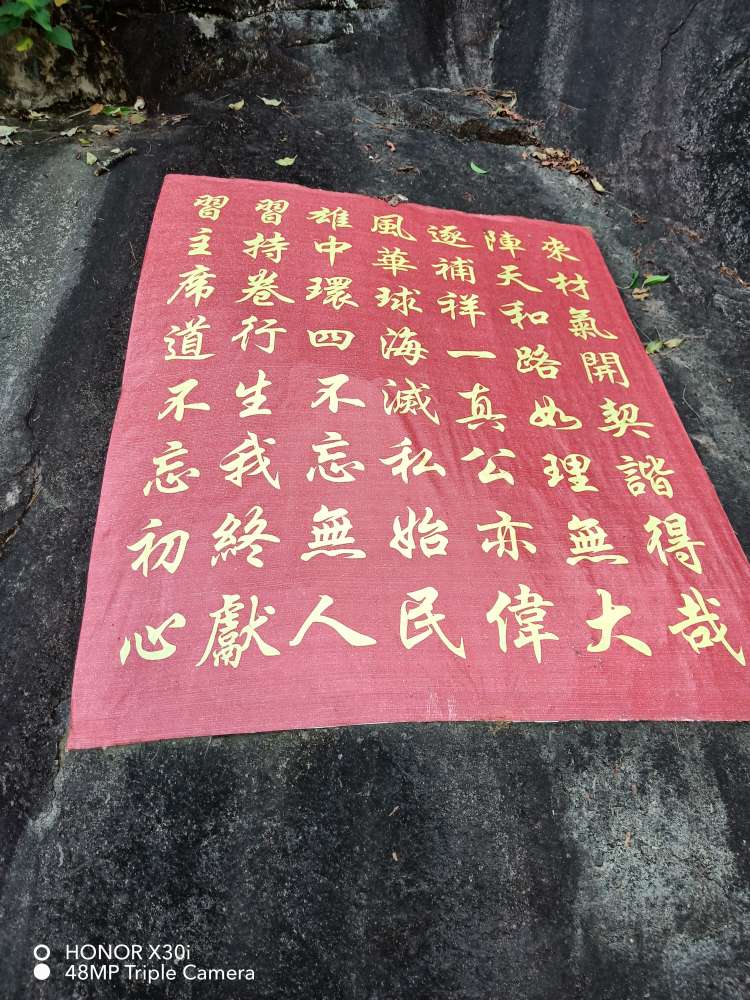 習習雄風逐陣來
主持中華補天材
席卷環球祥和氣
道行四海一路開
不生不滅真如契
忘我忘私公理諧
初終無始亦無得
心獻人民偉大哉
HONOR X30i
48MP Triple Camera